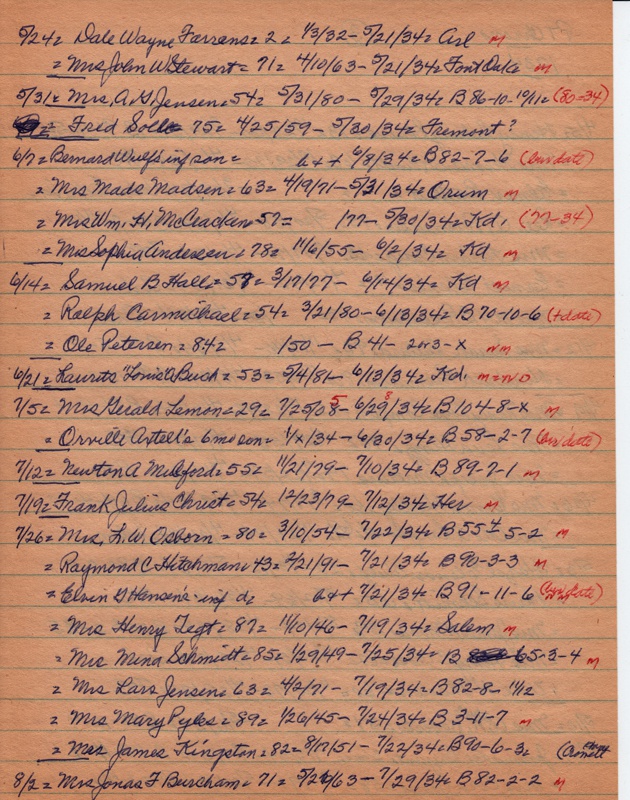 5/24 = Dale Wayne Farrans = 2 = 1/3/32 - 5/21/34 = Arl m
= Mrs John W Stewart = 71 = 4/10/63 - 5/21/34 = Font Oak = m
5/31 = Mrs. A. G. Jensen = 54 = 5/31/80 - 5/29/34 = B 86-10-10/11 = (80-34)
= Fred Solle 75 = 4/25/59 - 5/30/34 = Fremont?
6/7 = Bernard Wulf's inf son = b + + 6/8/34 = B 82-7-6 (bur date)
= Mrs Mads Madsen = 63 = 4/19/71 - 5/31/34 = Orum m
= Mrs Wm. H. McCracken = 57 = /77 - 5/30/34 = Kd. ('77-34)
= Mrs Sophia Andersen = 78 = 11/6/55 - 6/2/34 = Kd m
6/14 = Samuel B Hall = 57 = 3/17/77 - 6/14/34 = Kd m
= Ralph Carmichael = 54 = 3/21/80 - 6/13/34 = B 70-10-6 (+date)
= Ole Petersen = 84 = /50 - B 41 - 2 or 3 - x nm
6/21 = Laurets "Louis" A Buch = 53 = 5/4/81 - 6/13/34 = Kd. m=no
7/5 = Mrs Gerald Lemon = 29 = 7/25/05 - 6/28/34 = B 104-8-x m
= Orville Axtell's 6 mo son = 1/x/34 - 6/30/34 = B 58-2-7 (bur date)
7/12 = Newton A Mulford = 55 = 11/21/79 - 7/10/34 = B 89-7-1 m
7/19 = Frank Julius Christ = 54 = 12/23/79 - 7/12/34 = Her m
7/26 = Mrs. L. W. Osborn = 80 = 3/10/54 - 7/22/34 = B 55 1/2 5-2 m
= Raymond C Hitchman = 43 = 2/21/91 - 7/21/34 = B 90-3-3 m
= Elvin G Hansen's inf d = b + + 7/21/34 = B 91-11-6 (bur date)
= Mrs Henry Tegt = 87 = 11/10/46 - 7/19/34 = Salem m
= Mrs Mina Schmidt = 85 = 1/29/49 - 7/25/34 = B 65-3-4 m
= Mrs Lars Jensen = 63 = 4/2/71 - 7/19/34 = B 82-8-11/12
= Mrs Mary Pyles = 89 = 1/26/45 - 7/24/34 = B 3-11-7 m
= Mrs James Kingston = 82 = 8/17/51 - 7/22/34 = B 90-6-3 =
8/2 = Mrs Jonas F Burcham = 71 = 5/26/63 - 7/29/34 = B 82-2-2 m